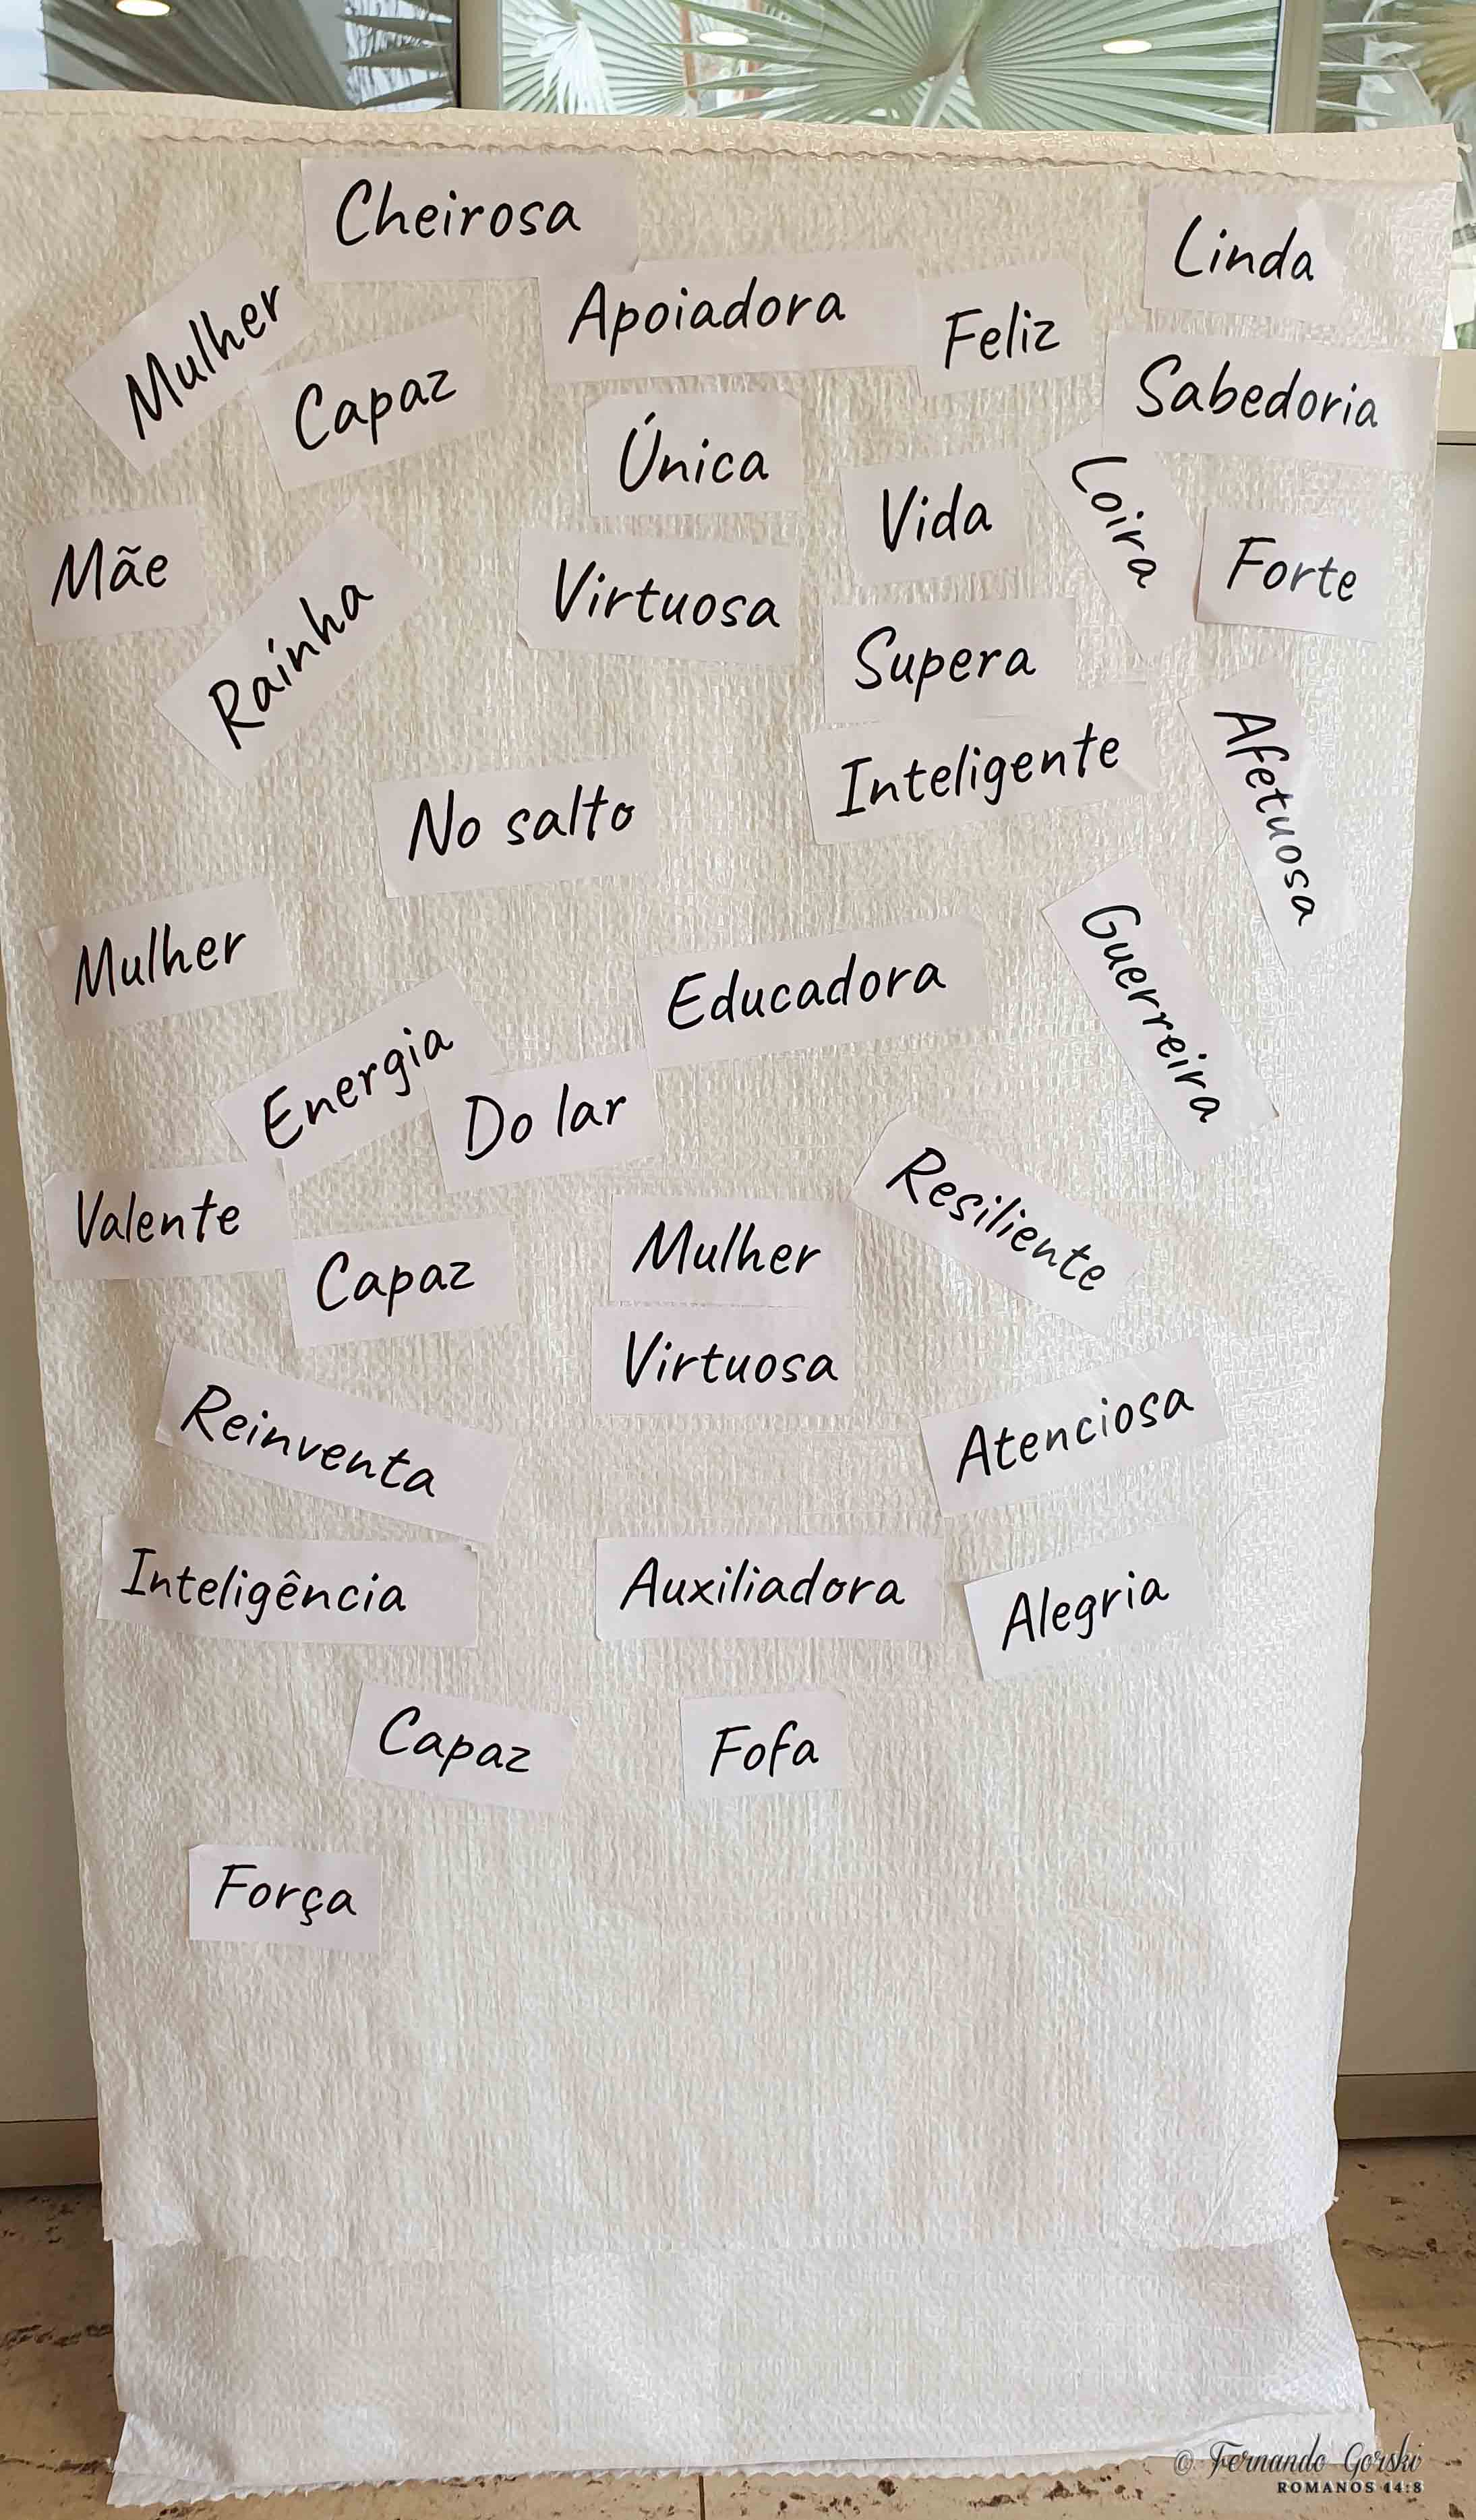 Cheirosa
Linda
Mulher
Apoiadora
Feliz
Capaz
Sabedoria
Única
Vida
Loira
Mãe
Forte
Virtuosa
Rainha
Supera
Inteligente
Afetuosa
No salto
Mulher
Educadora
Guerreira
Energia
Do lar
Valente
Resiliente
Mulher
Capaz
Virtuosa
Reinventa
Atenciosa
Inteligência
Auxiliadora
Alegria
Capaz
Fofa
Força
© Fernando Gorski
ROMANOS 14:8